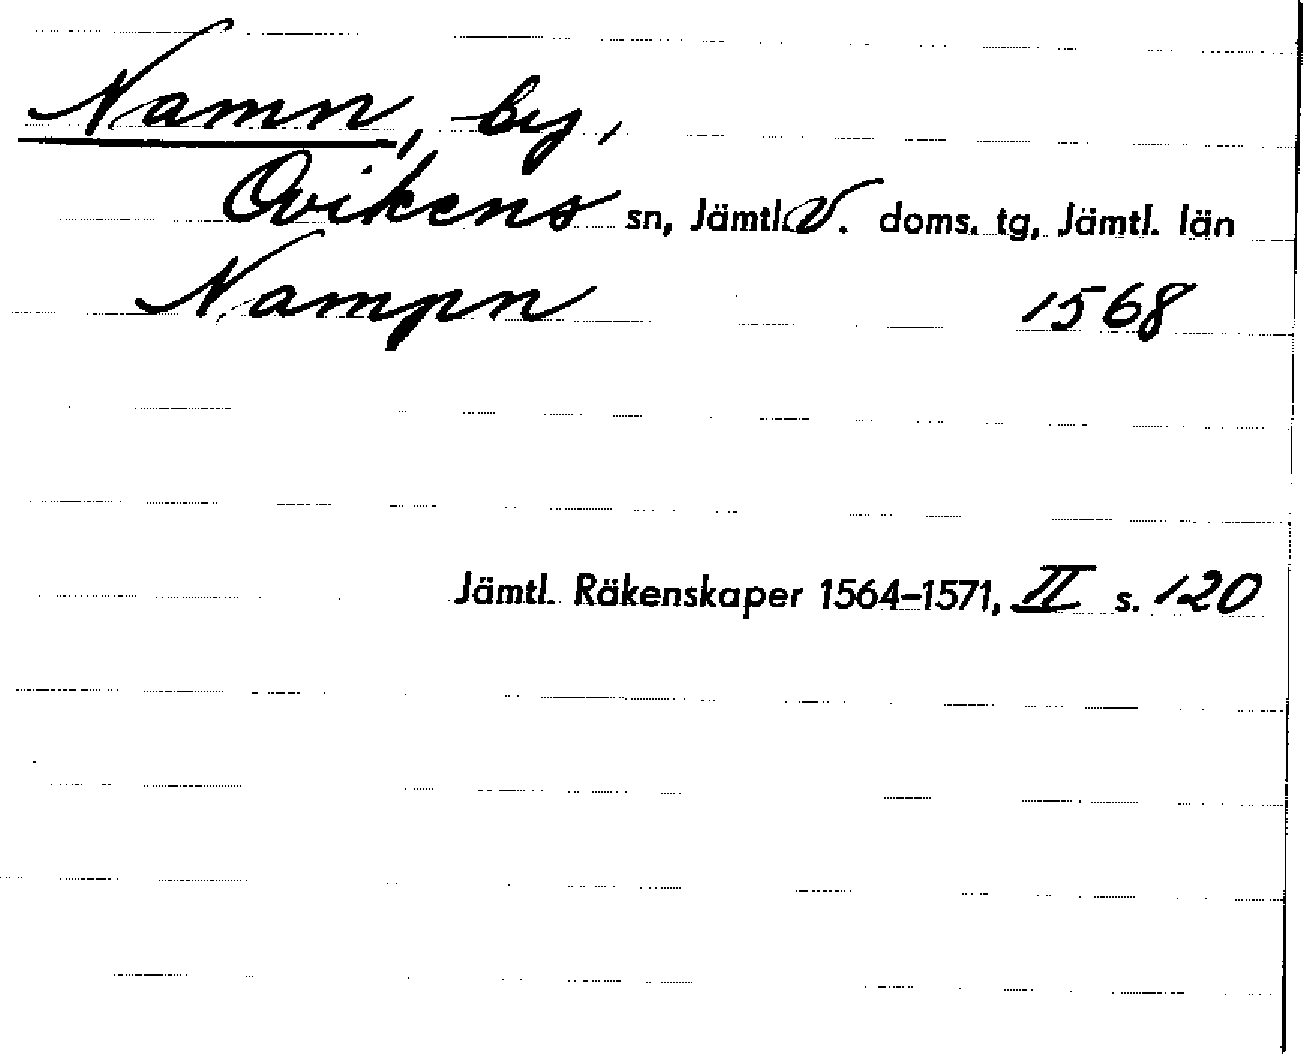 Namn, by,
Ovikens sn, Jämtl. V. doms. tg, Jämtl. län
Nampn 1568
Jämtl. Räkenskaper 1564-1571, II s. 120